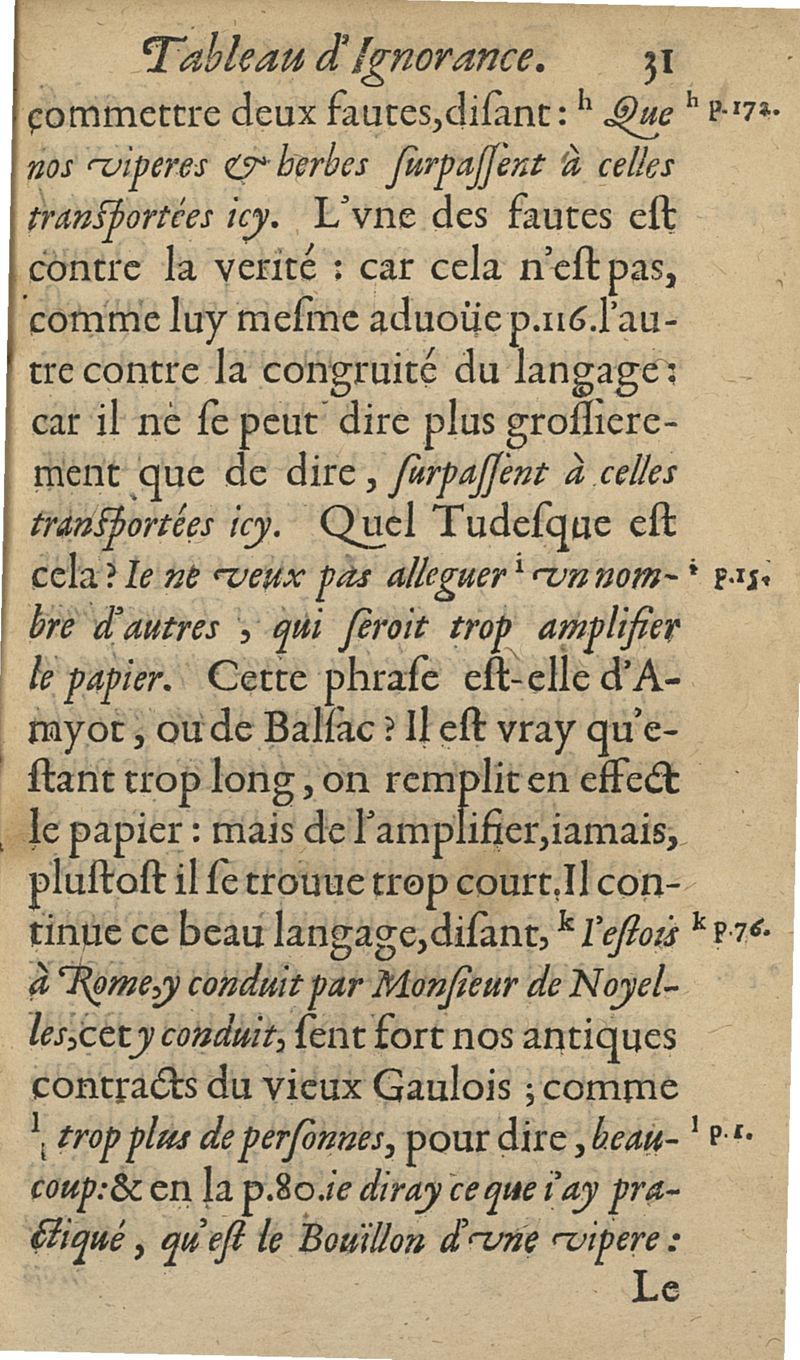 Tableau d'Ignorance. 31
commettre deux fautes,disant: ʰ Que ʰ p.172.
nos viperes & herbes surpassent à celles
transportées icy. L'vne des fautes est
contre la verité : car cela n'est pas,
comme luy mesme aduoüe p.116.l'au-
tre contre la congruité du langage:
car il ne se peut dire plus grossiere-
ment que de dire , surpassent à celles
transportées icy. Quel Tudesque est
cela ? Ie ne veux pas alleguer ⁱ vn nom- ⁱ p.15.
bre d'autres , qui seroit trop amplifier
le papier. Cette phrase est-elle d'A-
myot , ou de Balsac ? Il est vray qu'e-
stant trop long , on remplit en effect
le papier : mais de l'amplifier,iamais,
plustost il se trouue trop court.Il con-
tinue ce beau langage,disant, ᵏ l'estois ᵏ p.76.
à Rome,y conduit par Monsieur de Noyel-
les,cet y conduit, sent fort nos antiques
contracts du vieux Gaulois ; comme
ˡ trop plus de personnes, pour dire , beau- ˡ p.1.
coup:& en la p.80.ie diray ce que i'ay pra-
ctiqué , qu'est le Bouïllon d'vne vipere :
Le